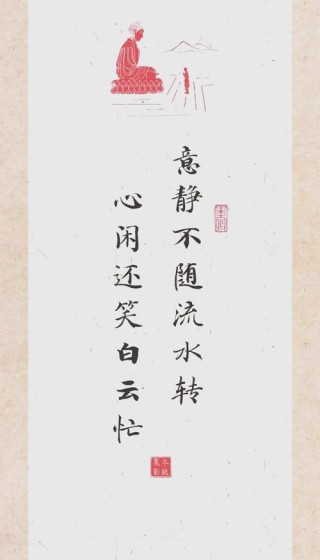 意静不随流水转
心闲还笑白云忙